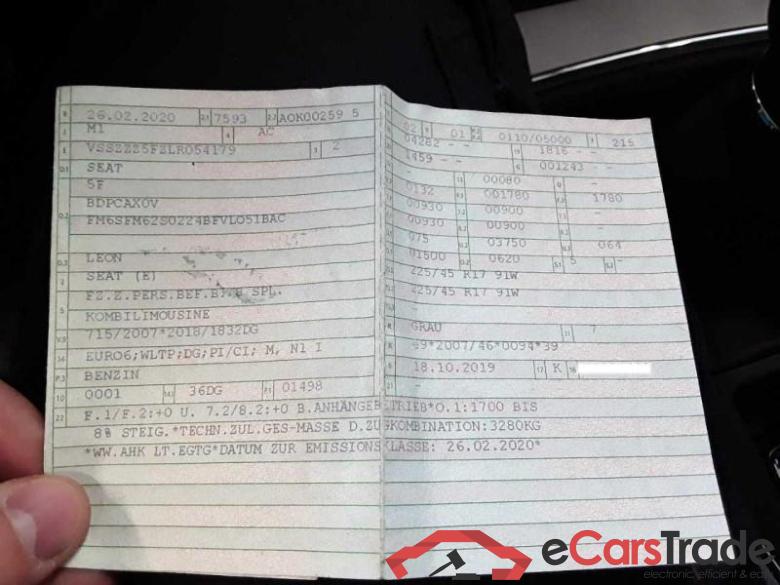 26.02.2020 7593 AOK00259 5
M1 AC
VSSZZZ5FZLR054179 2
SEAT
5F
BDPCAX0V
FM6SFM62S0224BFVL051BAC
LEON
SEAT (E)
FZ.Z.PERS.BEF.B. SPL.
KOMBILIMOUSINE
715/2007*2018/1832DG
EURO6;WLTP;DG;PI/CI; M, N1 I
BENZIN
10 0001 36DG 01498
22 F.1/F.2:+0 U. 7.2/8.2:+0 B.ANHÄNGEBETRIEB*O.1:1700 BIS
8% STEIG.*TECHN.ZUL.GES-MASSE D.ZUGKOMBINATION:3280KG
*WW.AHK LT.EGTG*DATUM ZUR EMISSIONSKLASSE: 26.02.2020*
02 01 0110/05000 215
04282 - - 1816 - -
1459 - - 001243 - -
- 00080 -
0132 001780 1780
00930 00900
00930 00900
075 03750 064
01500 0620 5 -
225/45 R17 91W
225/45 R17 91W
-
GRAU 7
e9*2007/46*0094*39
18.10.2019 K
-
eCarsTrade
electronic, efficient & ea